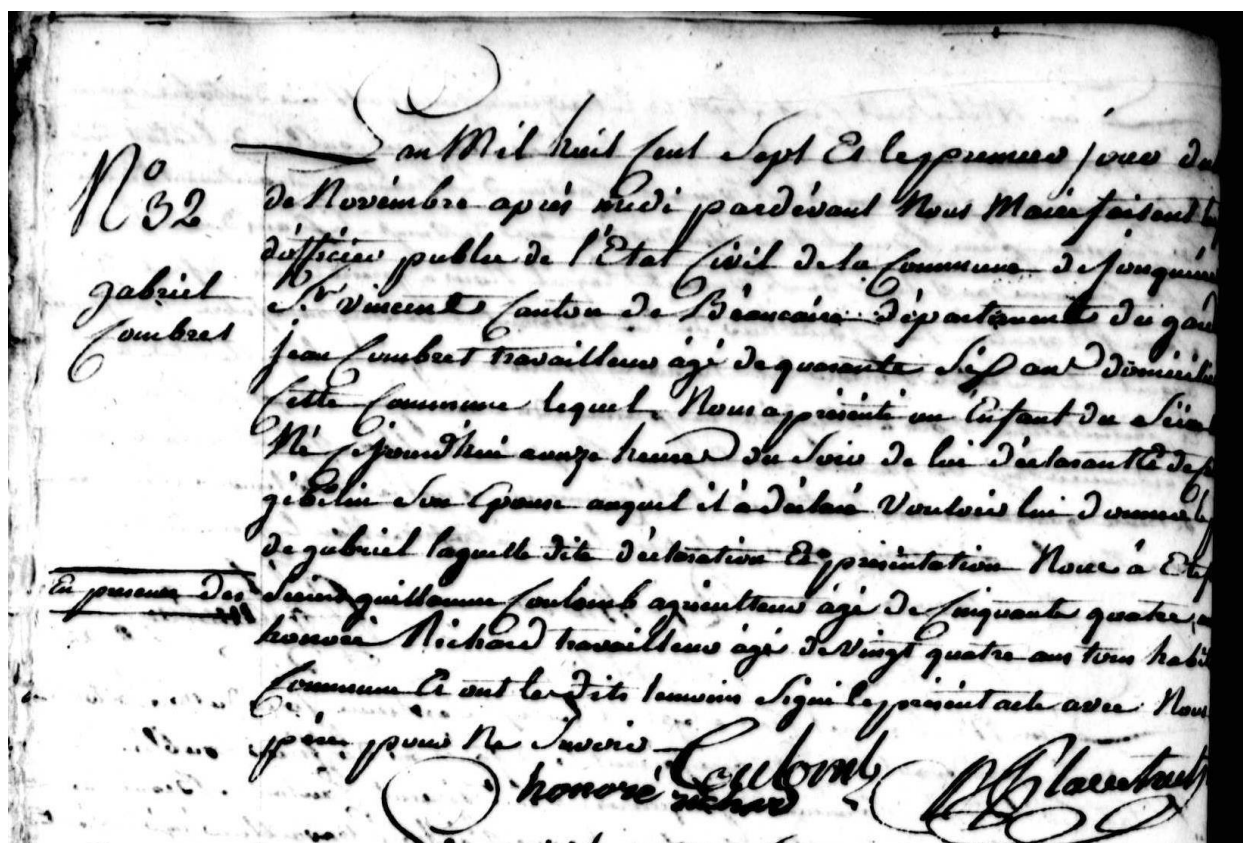 N° 32
gabriel
Combres
En presence des
L'an Mil huit Cent Sept Et le premier jour du
de Novémbre aprés midi pardévant Nous Maire faisant
d'officier public de l'Etat Civil de la Commune de jonquiere
St vincent Canton de Béaucaire départements du gard
jean Combret travailleur âgé de quarante an domicilie
Cette Commune lequel Nous a présénté un Enfant du
Né Cejourdhui a onze heures du Soir de lui déclarant Et de
gibélin Son Epouse auquel il à déclaré Vouloir lui donner
de gabriel laquelle dite déclaration Et préséntation Nous à Eté
guillaume Coulomb agriculteur âgé de Cinquante quatre
honoré Richard travailleur âgé de Vingt quatre ans tous
Commune Et ont les dits temoins Signé le présént acte avec Nous
pére pour Ne Savoir
Coulomb
honoré richard